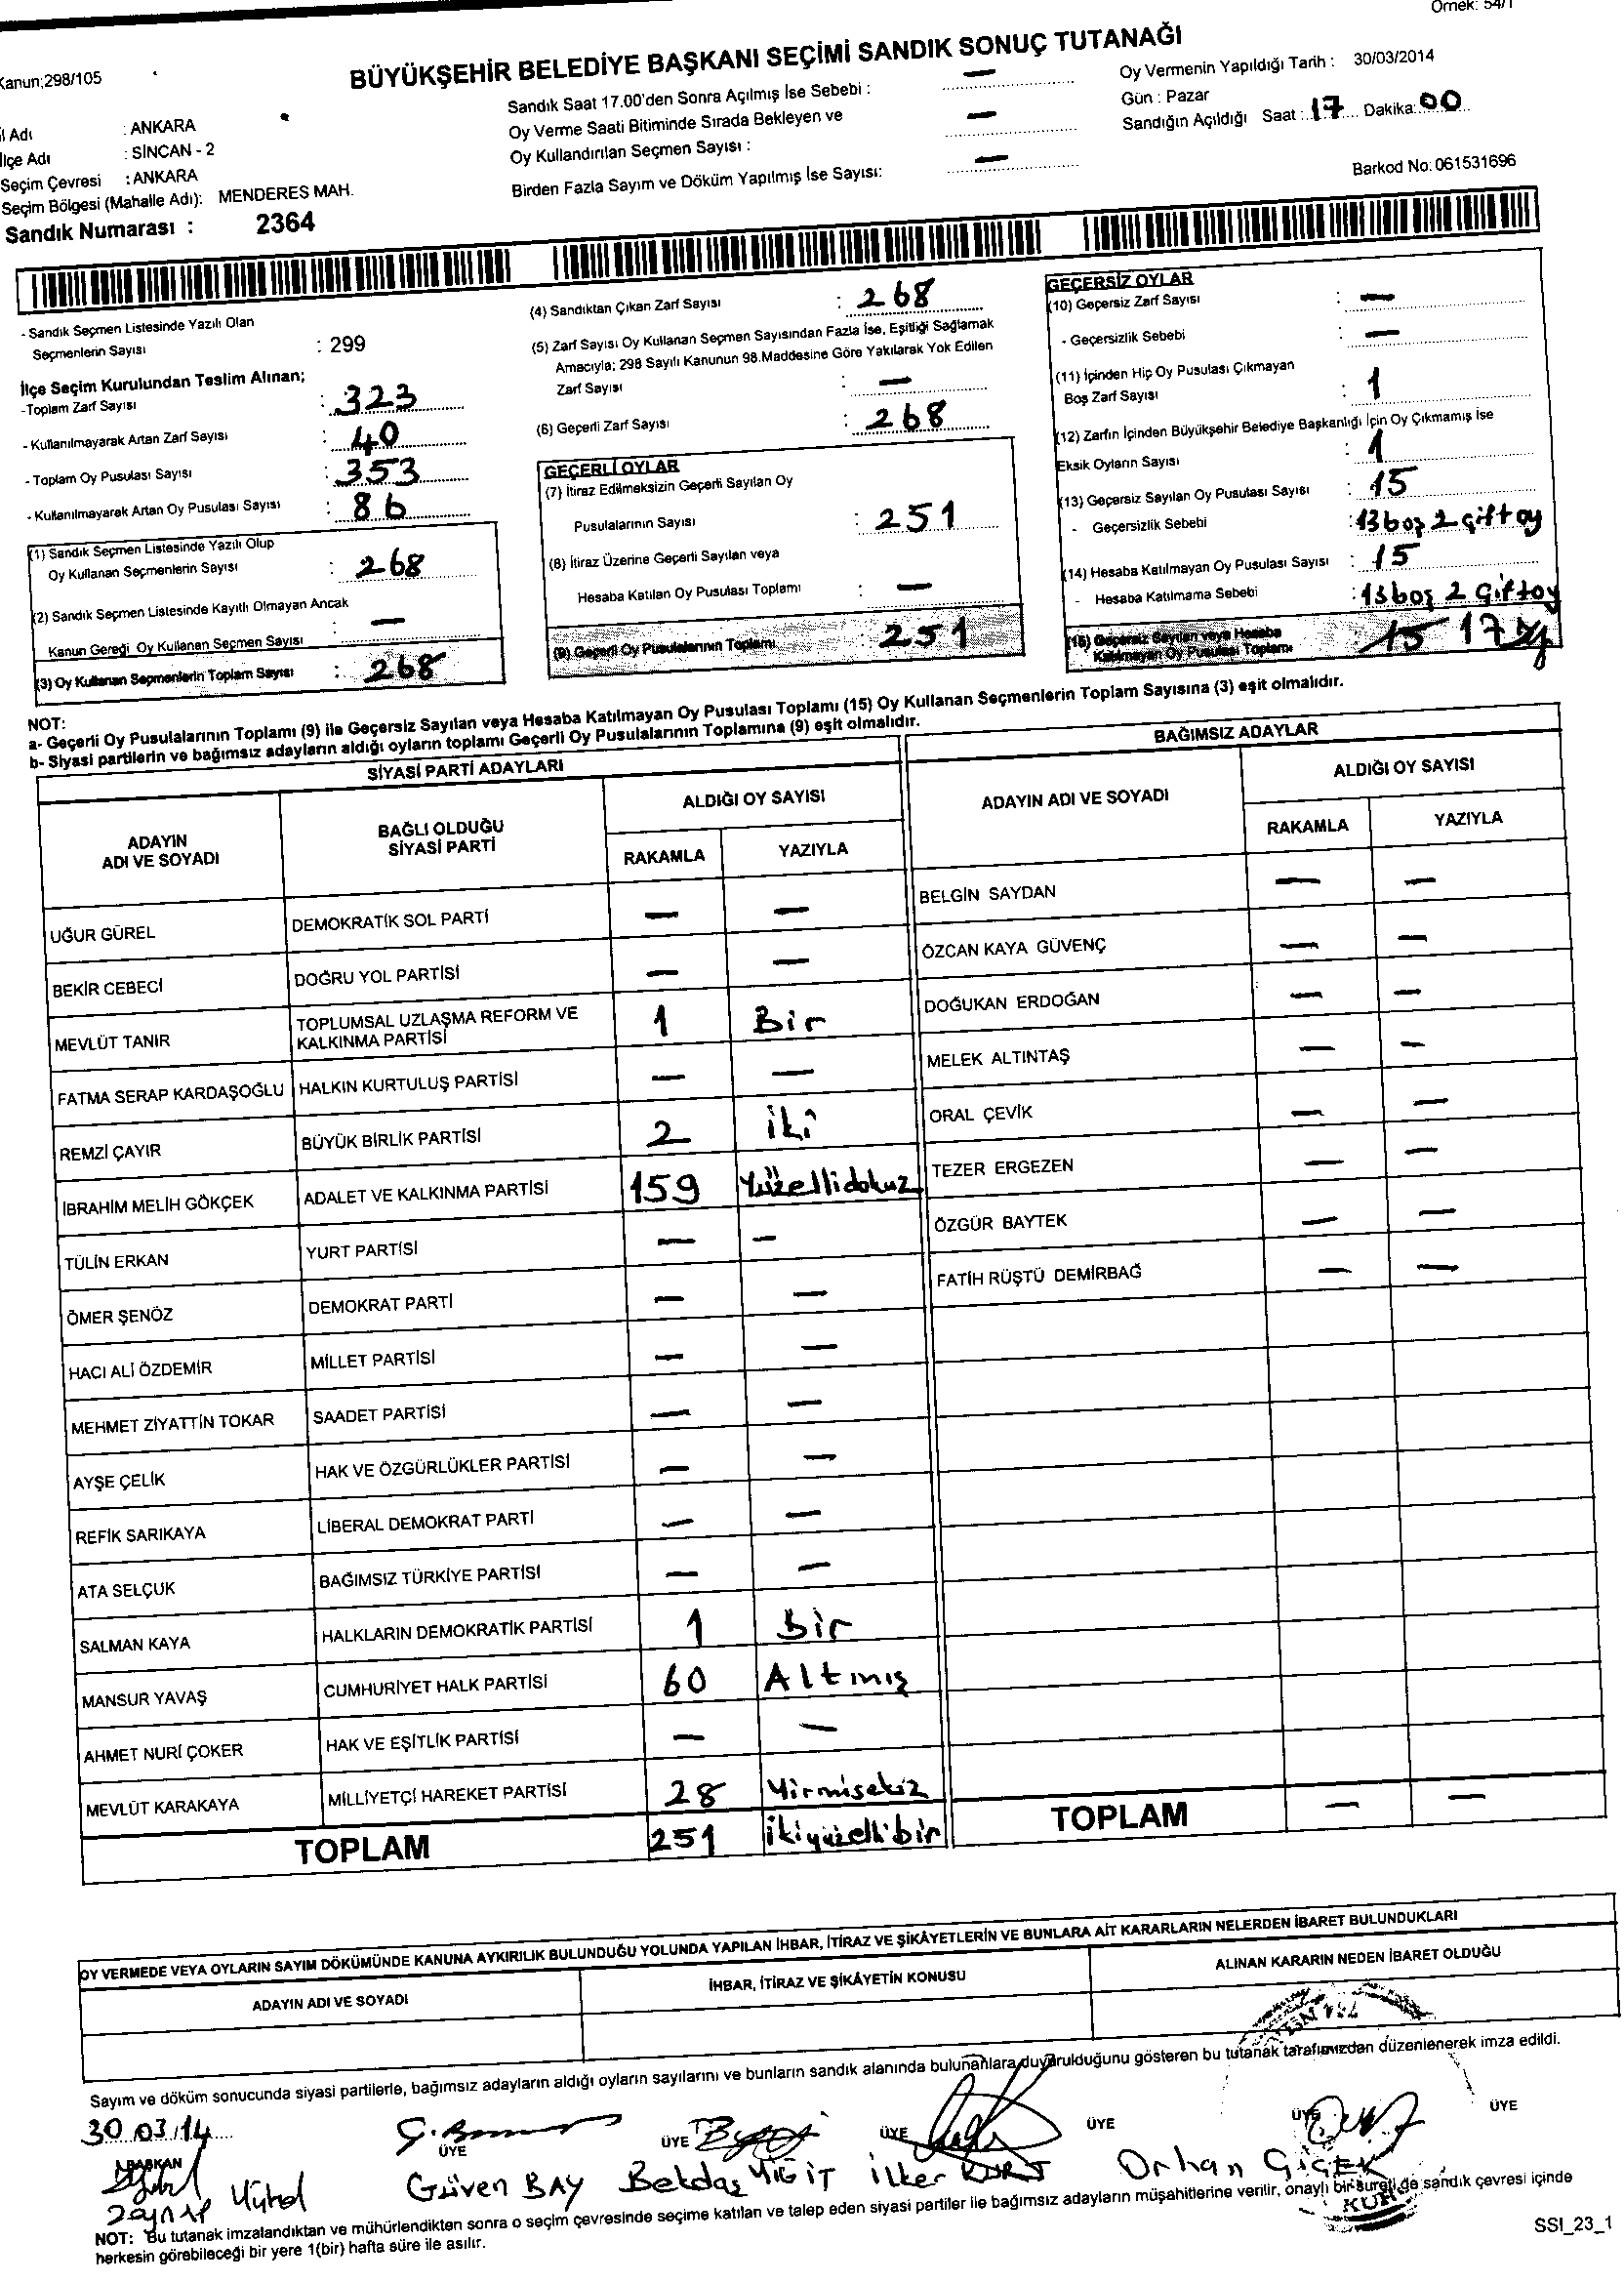 Örnek: 54/1
Kanun;298/105
BÜYÜKŞEHİR BELEDİYE BAŞKANI SEÇİMİ SANDIK SONUÇ TUTANAĞI
İl Adı : ANKARA
İlçe Adı : SİNCAN - 2
Seçim Çevresi : ANKARA
Seçim Bölgesi (Mahalle Adı): MENDERES MAH.
Sandık Numarası : 2364
Sandık Saat 17.00'den Sonra Açılmış İse Sebebi : —
Oy Verme Saati Bitiminde Sırada Bekleyen ve —
Oy Kullandırılan Seçmen Sayısı :
Birden Fazla Sayım ve Döküm Yapılmış İse Sayısı: —
Oy Vermenin Yapıldığı Tarih : 30/03/2014
Gün : Pazar
Sandığın Açıldığı Saat : 17 Dakika: 00
Barkod No: 061531696
- Sandık Seçmen Listesinde Yazılı Olan
Seçmenlerin Sayısı : 299
İlçe Seçim Kurulundan Teslim Alınan;
-Toplam Zarf Sayısı : 323
- Kullanılmayarak Artan Zarf Sayısı : 40
- Toplam Oy Pusulası Sayısı : 353
- Kullanılmayarak Artan Oy Pusulası Sayısı : 86
(1) Sandık Seçmen Listesinde Yazılı Olup
Oy Kullanan Seçmenlerin Sayısı : 268
(2) Sandık Seçmen Listesinde Kayıtlı Olmayan Ancak
Kanun Gereği Oy Kullanan Seçmen Sayısı : —
(3) Oy Kullanan Seçmenlerin Toplam Sayısı : 268
(4) Sandıktan Çıkan Zarf Sayısı : 268
(5) Zarf Sayısı Oy Kullanan Seçmen Sayısından Fazla İse, Eşitliği Sağlamak
Amacıyla; 298 Sayılı Kanunun 98.Maddesine Göre Yakılarak Yok Edilen
Zarf Sayısı : —
(6) Geçerli Zarf Sayısı : 268
GEÇERLİ OYLAR
(7) İtiraz Edilmeksizin Geçerli Sayılan Oy
Pusulalarının Sayısı : 251
(8) İtiraz Üzerine Geçerli Sayılan veya
Hesaba Katılan Oy Pusulası Toplamı : —
(9) Geçerli Oy Pusulalarının Toplamı : 251
GEÇERSİZ OYLAR
(10) Geçersiz Zarf Sayısı : —
- Geçersizlik Sebebi : —
(11) İçinden Hiç Oy Pusulası Çıkmayan
Boş Zarf Sayısı : 1
(12) Zarfın İçinden Büyükşehir Belediye Başkanlığı İçin Oy Çıkmamış İse
Eksik Oyların Sayısı : 1
(13) Geçersiz Sayılan Oy Pusulası Sayısı : 15
- Geçersizlik Sebebi : 13 boş 2 çift oy
(14) Hesaba Katılmayan Oy Pusulası Sayısı : 15
- Hesaba Katılmama Sebebi : 13 boş 2 çift oy
(15) Geçersiz Sayılan veya Hesaba
Katılmayan Oy Pusulası Toplamı : 15 17
NOT:
a- Geçerli Oy Pusulalarının Toplamı (9) ile Geçersiz Sayılan veya Hesaba Katılmayan Oy Pusulası Toplamı (15) Oy Kullanan Seçmenlerin Toplam Sayısına (3) eşit olmalıdır.
b- Siyasi partilerin ve bağımsız adayların aldığı oyların toplamı Geçerli Oy Pusulalarının Toplamına (9) eşit olmalıdır.
SİYASİ PARTİ ADAYLARI
ADAYIN
ADI VE SOYADI
BAĞLI OLDUĞU
SİYASİ PARTİ
ALDIĞI OY SAYISI
RAKAMLA YAZIYLA
UĞUR GÜREL DEMOKRATİK SOL PARTİ — —
BEKİR CEBECİ DOĞRU YOL PARTİSİ — —
MEVLÜT TANIR TOPLUMSAL UZLAŞMA REFORM VE KALKINMA PARTİSİ 1 Bir
FATMA SERAP KARDAŞOĞLU HALKIN KURTULUŞ PARTİSİ — —
REMZİ ÇAYIR BÜYÜK BİRLİK PARTİSİ 2 iki
İBRAHİM MELİH GÖKÇEK ADALET VE KALKINMA PARTİSİ 159 Yüzellidokuz
TÜLİN ERKAN YURT PARTİSİ — —
ÖMER ŞENÖZ DEMOKRAT PARTİ — —
HACI ALİ ÖZDEMİR MİLLET PARTİSİ — —
MEHMET ZİYATTİN TOKAR SAADET PARTİSİ — —
AYŞE ÇELİK HAK VE ÖZGÜRLÜKLER PARTİSİ — —
REFİK SARIKAYA LİBERAL DEMOKRAT PARTİ — —
ATA SELÇUK BAĞIMSIZ TÜRKİYE PARTİSİ — —
SALMAN KAYA HALKLARIN DEMOKRATİK PARTİSİ 1 Bir
MANSUR YAVAŞ CUMHURİYET HALK PARTİSİ 60 Altmış
AHMET NURİ ÇOKER HAK VE EŞİTLİK PARTİSİ — —
MEVLÜT KARAKAYA MİLLİYETÇİ HAREKET PARTİSİ 28 Yirmisekiz
TOPLAM 251 ikiyüzellibir
BAĞIMSIZ ADAYLAR
ADAYIN ADI VE SOYADI
ALDIĞI OY SAYISI
RAKAMLA YAZIYLA
BELGİN SAYDAN — —
ÖZCAN KAYA GÜVENÇ — —
DOĞUKAN ERDOĞAN — —
MELEK ALTINTAŞ — —
ORAL ÇEVİK — —
TEZER ERGEZEN — —
ÖZGÜR BAYTEK — —
FATİH RÜŞTÜ DEMİRBAĞ — —
TOPLAM — —
OY VERMEDE VEYA OYLARIN SAYIM DÖKÜMÜNDE KANUNA AYKIRILIK BULUNDUĞU YOLUNDA YAPILAN İHBAR, İTİRAZ VE ŞİKÂYETLERİN VE BUNLARA AİT KARARLARIN NELERDEN İBARET BULUNDUKLARI
ADAYIN ADI VE SOYADI İHBAR, İTİRAZ VE ŞİKÂYETİN KONUSU ALINAN KARARIN NEDEN İBARET OLDUĞU
Sayım ve döküm sonucunda siyasi partilerle, bağımsız adayların aldığı oyların sayılarını ve bunların sandık alanında bulunanlara duyurulduğunu gösteren bu tutanak tarafımızdan düzenlenerek imza edildi.
30.03.14
BAŞKAN ÜYE ÜYE ÜYE ÜYE ÜYE ÜYE
Zeynep Güven BAY Bektaş YİĞİT ilker KURT Orhan ÇİÇEK
NOT: Bu tutanak imzalandıktan ve mühürlendikten sonra o seçim çevresinde seçime katılan ve talep eden siyasi partiler ile bağımsız adayların müşahitlerine verilir, onaylı bir sureti de sandık çevresi içinde
herkesin görebileceği bir yere 1(bir) hafta süre ile asılır.
SSI_23_1